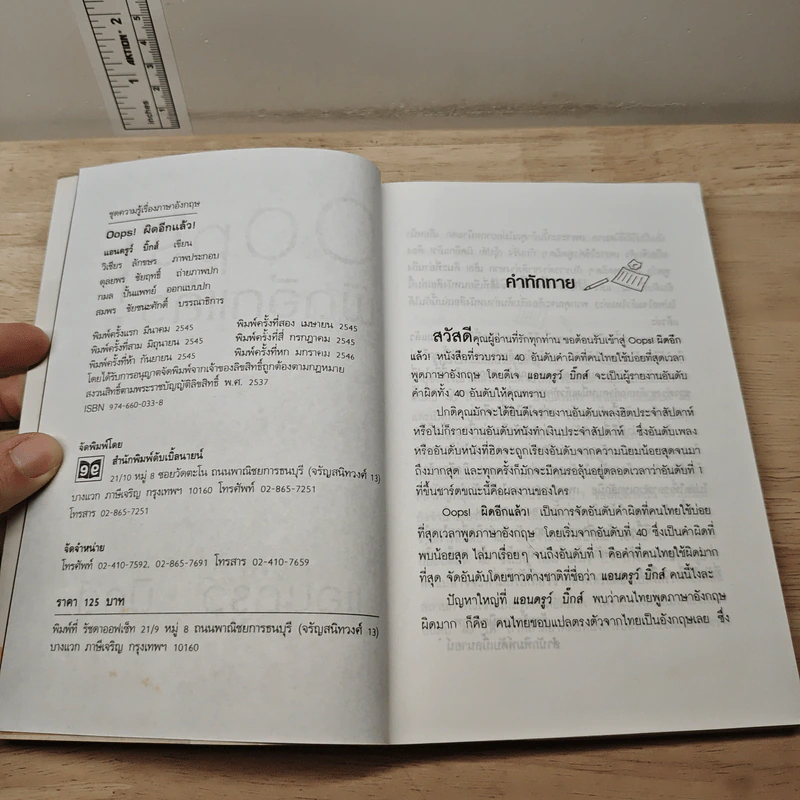 inches 1 2 AKTION 3 4 5
ชุดความรู้เรื่องภาษาอังกฤษ
Oops! ผิดอีกแล้ว!
แอนดรูว์ บิ๊กส์ เขียน
วิเชียร ลักขษร ภาพประกอบ
ตุลยพร ชัยฤทธิ์ ถ่ายภาพปก
กมล ปั้นแพทย์ ออกแบบปก
สมพร ชัยชนะศักดิ์ บรรณาธิการ
พิมพ์ครั้งแรก มีนาคม 2545 พิมพ์ครั้งที่สอง เมษายน 2545
พิมพ์ครั้งที่สาม มิถุนายน 2545 พิมพ์ครั้งที่สี่ กรกฎาคม 2545
พิมพ์ครั้งที่ห้า กันยายน 2545 พิมพ์ครั้งที่หก มกราคม 2546
โดยได้รับการอนุญาตจัดพิมพ์จากเจ้าของลิขสิทธิ์ถูกต้องตามกฎหมาย
สงวนสิทธิ์ตามพระราชบัญญัติลิขสิทธิ์ พ.ศ. 2537
ISBN 974-660-033-8
จัดพิมพ์โดย
๑๑ สำนักพิมพ์ดับเบิ้ลนายน์
21/10 หมู่ 8 ซอยวัดตะโน ถนนพาณิชยการธนบุรี (จรัญสนิทวงศ์ 13)
บางแวก ภาษีเจริญ กรุงเทพฯ 10160 โทรศัพท์ 02-865-7251
โทรสาร 02-865-7251
จัดจำหน่าย
โทรศัพท์ 02-410-7592, 02-865-7691 โทรสาร 02-410-7659
ราคา 125 บาท
พิมพ์ที่ รัชดาออฟเซ็ท 21/9 หมู่ 8 ถนนพาณิชยการธนบุรี (จรัญสนิทวงศ์ 13)
บางแวก ภาษีเจริญ กรุงเทพฯ 10160
คำทักทาย
สวัสดีคุณผู้อ่านที่รักทุกท่าน ขอต้อนรับเข้าสู่ Oops! ผิดอีก
แล้ว! หนังสือที่รวบรวม 40 อันดับคำผิดที่คนไทยใช้บ่อยที่สุดเวลา
พูดภาษาอังกฤษ โดยดีเจ แอนดรูว์ บิ๊กส์ จะเป็นผู้รายงานอันดับ
คำผิดทั้ง 40 อันดับให้คุณทราบ
ปกติคุณมักจะได้ยินดีเจรายงานอันดับเพลงฮิตประจำสัปดาห์
หรือไม่ก็รายงานอันดับหนังทำเงินประจำสัปดาห์ ซึ่งอันดับเพลง
หรืออันดับหนังที่ฮิตจะถูกเรียงอันดับจากความนิยมน้อยสุดจนมา
ถึงมากสุด และทุกครั้งก็มักจะมีคนรอลุ้นอยู่ตลอดเวลาว่าอันดับที่ 1
ที่ขึ้นชาร์ตขณะนี้คือผลงานของใคร
Oops! ผิดอีกแล้ว! เป็นการจัดอันดับคำผิดที่คนไทยใช้บ่อย
ที่สุดเวลาพูดภาษาอังกฤษ โดยเริ่มจากอันดับที่ 40 ซึ่งเป็นคำผิดที่
พบน้อยสุด ไล่มาเรื่อยๆ จนถึงอันดับที่ 1 คือคำที่คนไทยใช้ผิดมาก
ที่สุด จัดอันดับโดยชาวต่างชาติที่ชื่อว่า แอนดรูว์ บิ๊กส์ คนนี้ไงละ
ปัญหาใหญ่ที่ แอนดรูว์ บิ๊กส์ พบว่าคนไทยพูดภาษาอังกฤษ
ผิดมาก ก็คือ คนไทยชอบแปลตรงตัวจากไทยเป็นอังกฤษเลย ซึ่ง